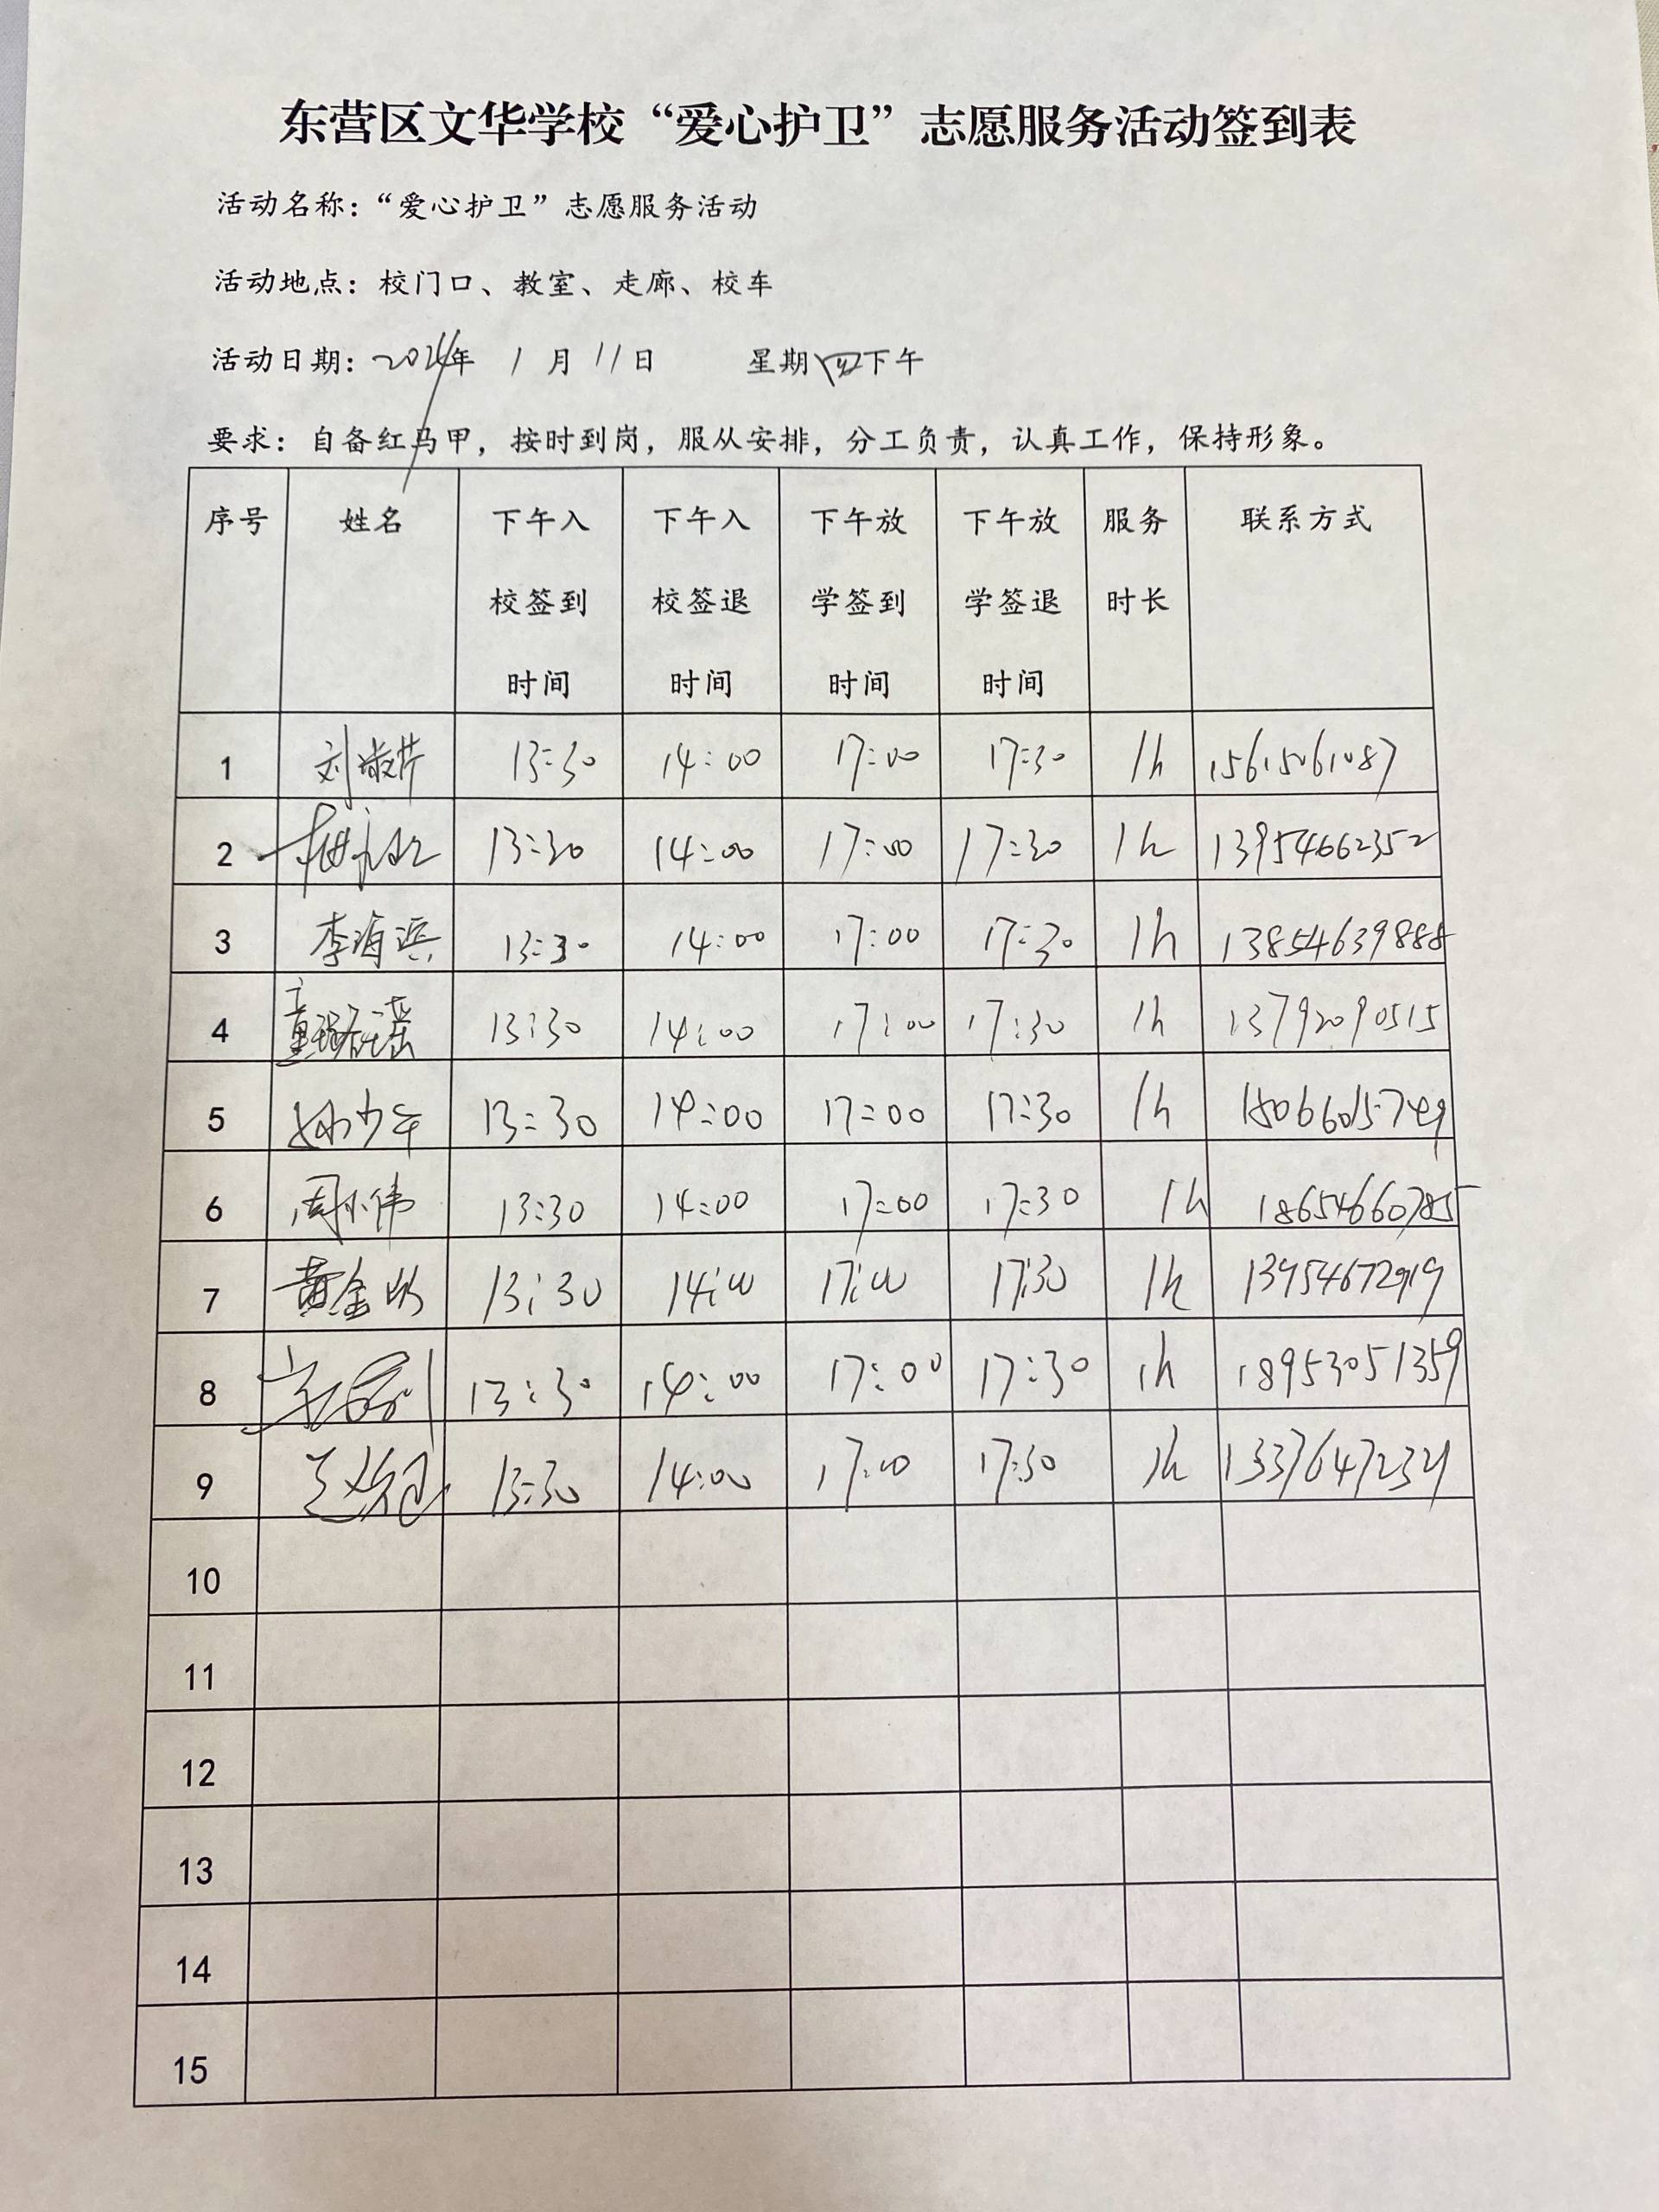 东营区文华学校“爱心护卫”志愿服务活动签到表
活动名称：“爱心护卫”志愿服务活动
活动地点：校门口、教室、走廊、校车
活动日期：2024年 1月 11日 星期四下午
要求：自备红马甲，按时到岗，服从安排，分工负责，认真工作，保持形象。
序号 姓名 下午入校签到时间 下午入校签退时间 下午放学签到时间 下午放学签退时间 服务时长 联系方式
1 刘淑芹 13:30 14:00 17:00 17:30 1h 15615061087
2 13:30 14:00 17:00 17:30 1h 13954662352
3 李海滨 13:30 14:00 17:00 17:30 1h 13854639888
4 13:30 14:00 17:00 17:30 1h 13792090515
5 13:30 14:00 17:00 17:30 1h 18066015749
6 周小伟 13:30 14:00 17:00 17:30 1h 18654660785
7 13:30 14:00 17:00 17:30 1h 13954672919
8 13:30 14:00 17:00 17:30 1h 18953051359
9 13:30 14:00 17:00 17:30 1h
10
11
12
13
14
15